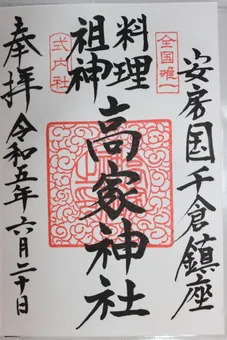 全国唯一
安房国千倉鎮座
料理
祖神
高家神社
式内社
奉拝
令和五年六月二十日